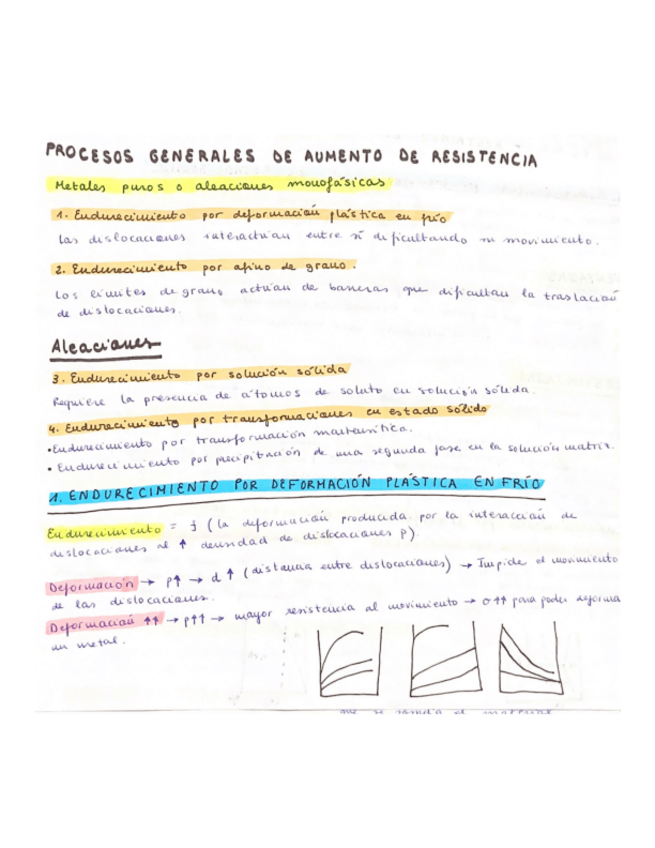 PROCESOS GENERALES DE AUMENTO DE RESISTENCIA
Metales puros o aleaciones monofásicas
1. Endurecimiento por deformación plástica en frío
Las dislocaciones interactúan entre sí dificultando su movimiento.
2. Endurecimiento por afino de grano.
Los límites de grano actúan de barreras que dificultan la traslación
de dislocaciones.
Aleaciones
3. Endurecimiento por solución sólida
Requiere la presencia de átomos de soluto en solución sólida.
4. Endurecimiento por transformaciones en estado sólido
•Endurecimiento por transformación martensítica.
• Endurecimiento por precipitación de una segunda fase en la solución matriz.
1. ENDURECIMIENTO POR DEFORMACIÓN PLÁSTICA EN FRÍO
Endurecimiento = f (la deformación producida por la interacción de
dislocaciones al ↑ densidad de dislocaciones ρ)
Deformación → ρ↑ → d ↑ (distancia entre dislocaciones) → Impide el movimiento
de las dislocaciones.
Deformación ↑↑ → ρ↑↑ → mayor resistencia al movimiento → σ↑↑ para poder deforma
un metal.